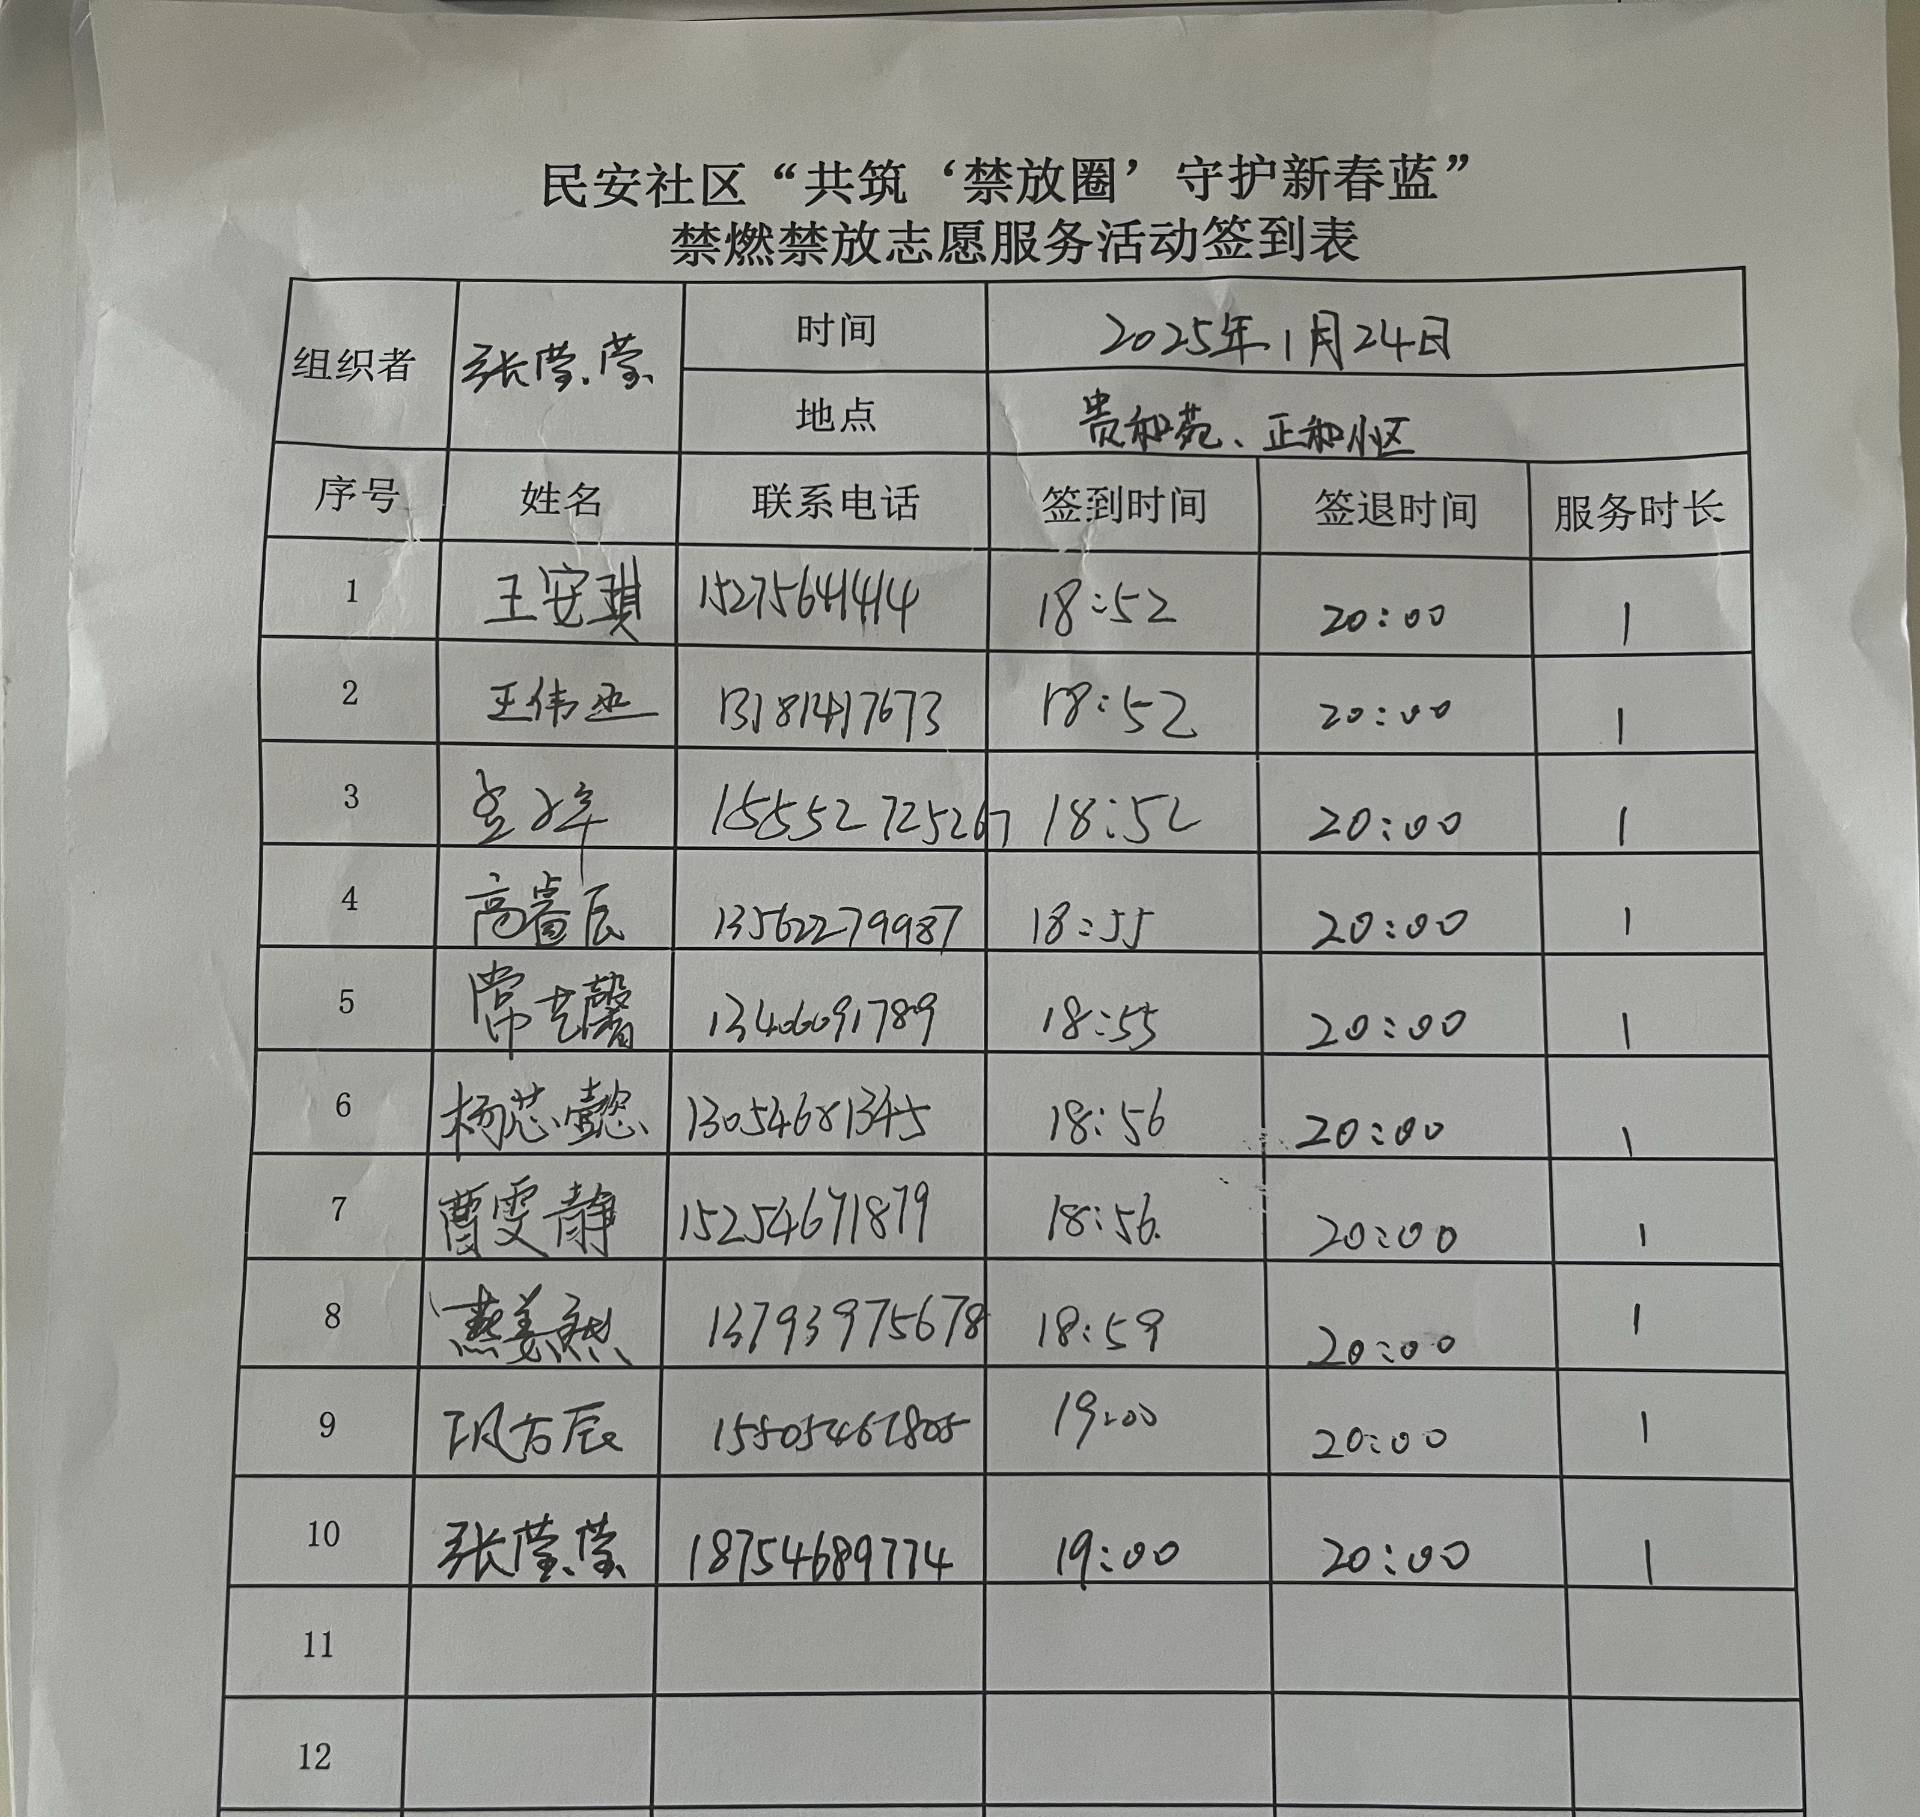 民安社区“共筑‘禁放圈’守护新春蓝”
禁燃禁放志愿服务活动签到表
组织者 张莹莹 时间 2025年1月24日
地点 贵和苑、正和小区
序号 姓名 联系电话 签到时间 签退时间 服务时长
1 王安琪 15275641414 18:52 20:00 1
2 王伟丞 13181417673 18:52 20:00 1
3 15552725267 18:52 20:00 1
4 高睿辰 13562279987 18:55 20:00 1
5 常艺馨 13406091789 18:55 20:00 1
6 杨芯懿 13054681345 18:56 20:00 1
7 曹雯静 15254671879 18:56 20:00 1
8 燕姜 13793975678 18:59 20:00 1
9 巩方辰 15505467805 19:00 20:00 1
10 张莹莹 18754689774 19:00 20:00 1
11
12